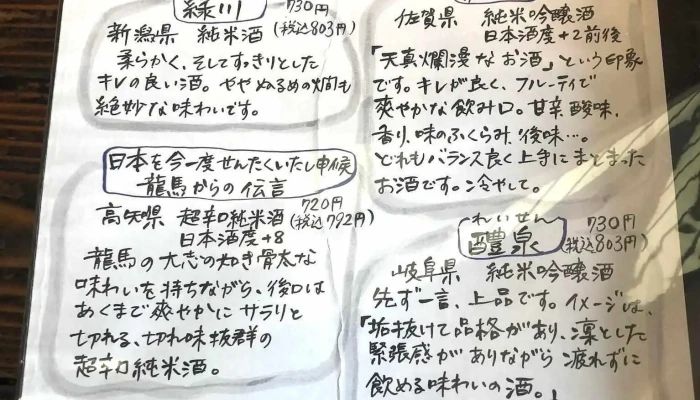 緑川
730円
新潟県 純米酒 (税込803円)
柔らかく、そしてすっきりとした
キレの良い酒。ややぬるめの燗も
絶妙な味わいです。
日本を今一度せんたくいたし申候
龍馬からの伝言
720円
高知県 超辛口純米酒 (税込792円)
日本酒度+8
龍馬の大志の如き骨太な
味わいを持ちながら、後口は
あくまで爽やかにサラリと
切れる、切れ味抜群の
超辛口純米酒。
佐賀県 純米吟醸酒
日本酒度+2前後
「天真爛漫なお酒」という印象
です。キレが良く、フルーティで
爽やかな飲み口。甘辛酸味、
香り、味のふくらみ、後味…。
どれもバランス良く上手にまとまった
お酒です。冷やして。
れいせん
醴泉
730円
(税込803円)
岐阜県 純米吟醸酒
先ず一言、上品です。イメージは、
「垢抜けて品格があり、凜とした
緊張感がありながら疲れずに
飲める味わいの酒。」